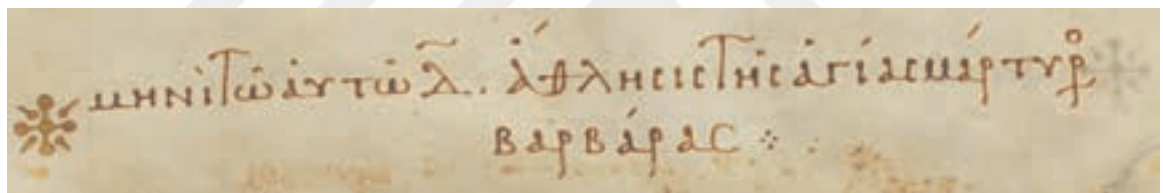 μηνὶ τῶ ἀυτῶ Δ̅. ἄθλησις τῆς ἁγίας μάρτυρο
βαρβάρας